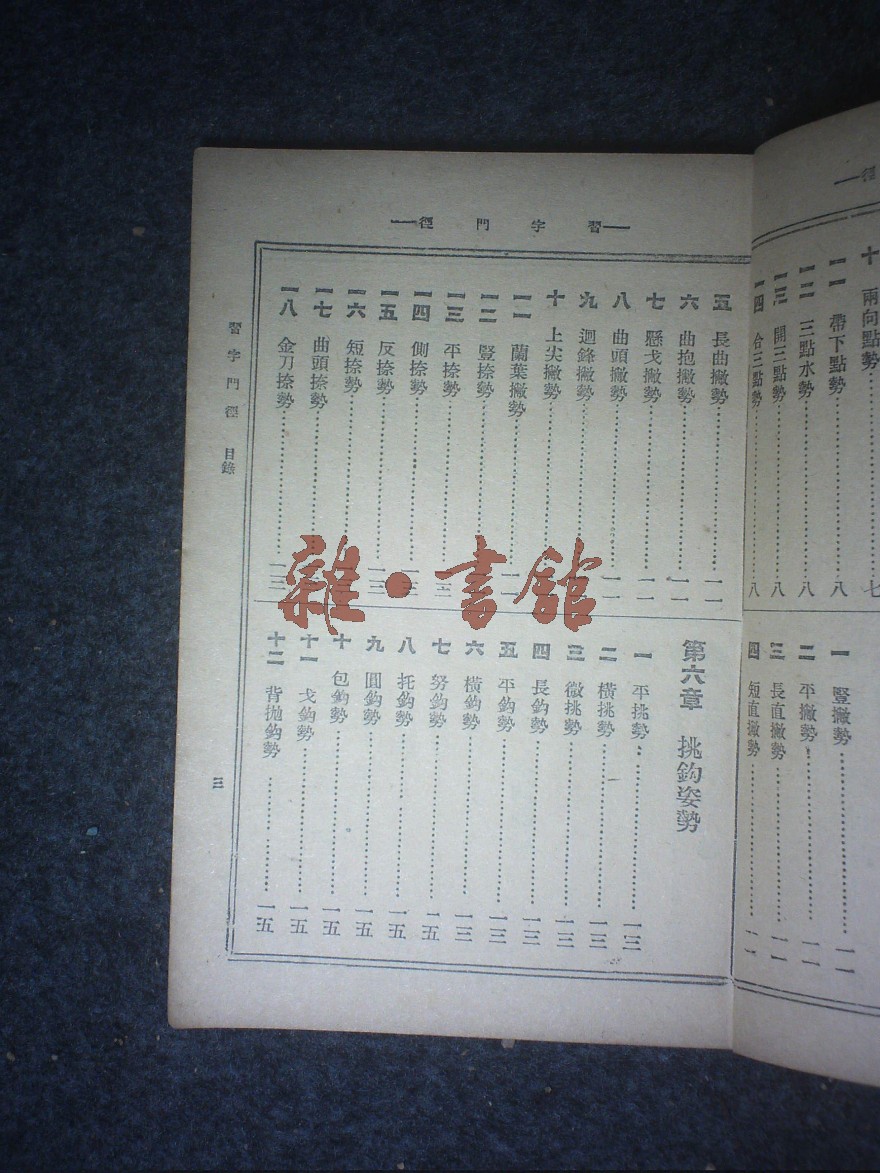 習字門徑
十 兩向點勢 七
一一 帶下點勢 八
一二 三點水勢 八
一三 開三點勢 八
一四 合三點勢 八
一 豎撇勢 一一
二 平撇勢 一一
三 長直撇勢 一一
四 短直撇勢 一一
五 長曲撇勢 一一
六 曲抱撇勢 一一
七 懸戈撇勢 一一
八 曲頭撇勢 一一
九 迴鋒撇勢
十 上尖撇勢
一一 蘭葉撇勢 一一
一二 豎捺勢
一三 平捺勢
一四 側捺勢 一三
一五 反捺勢 一三
一六 短捺勢
一七 曲頭捺勢
一八 金刀捺勢 一三
第六章 挑鈎姿勢
一 平挑勢 一三
二 橫挑勢 一三
三 微挑勢 一三
四 長鈎勢 一三
五 平鈎勢 一三
六 橫鈎勢 一三
七 努鈎勢 一五
八 托鈎勢 一五
九 圓鈎勢 一五
十 包鈎勢 一五
十一 戈鈎勢 一五
十二 背抛鈎勢 一五
習字門徑 目錄
三
雜·書館